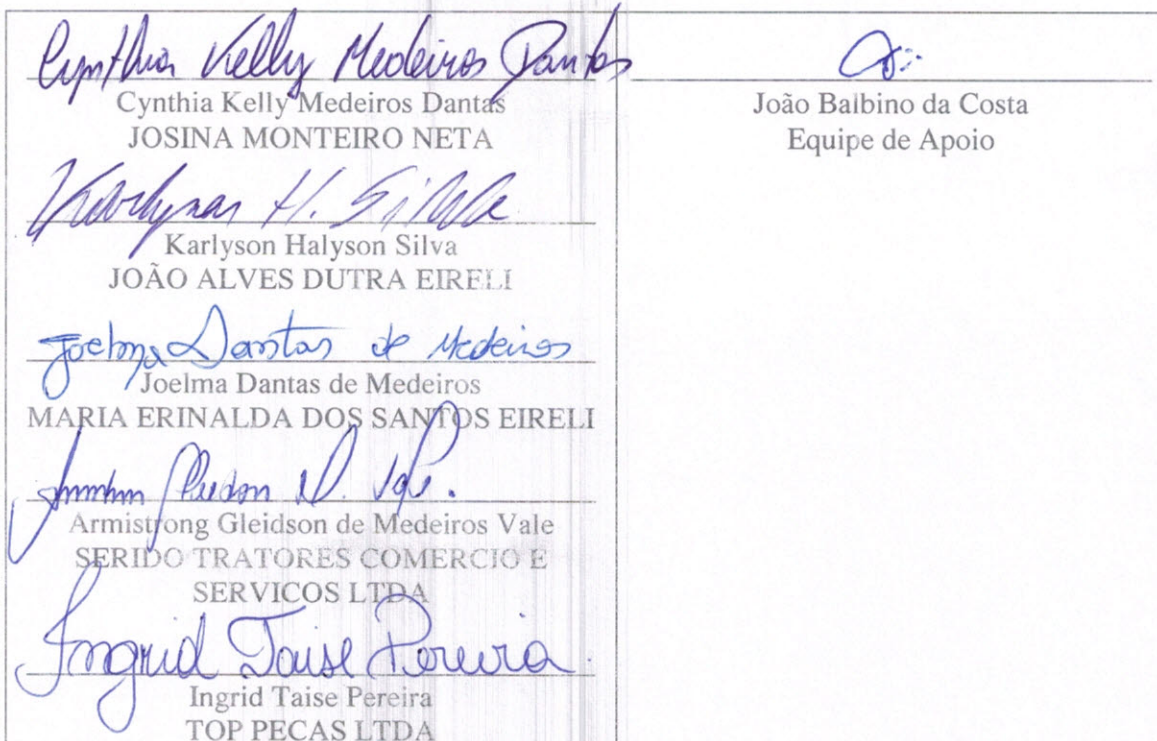 Cynthia Kelly Medeiros Dantas
Cynthia Kelly Medeiros Dantas
JOSINA MONTEIRO NETA
Karlyson H. Silva
Karlyson Halyson Silva
JOÃO ALVES DUTRA EIRELI
Joelma Dantas de Medeiros
Joelma Dantas de Medeiros
MARIA ERINALDA DOS SANTOS EIRELI
Armistrong Gleidson de Medeiros Vale
SERIDO TRATORES COMERCIO E
SERVICOS LTDA
Ingrid Taise Pereira
Ingrid Taise Pereira
TOP PECAS LTDA
João Balbino da Costa
Equipe de Apoio